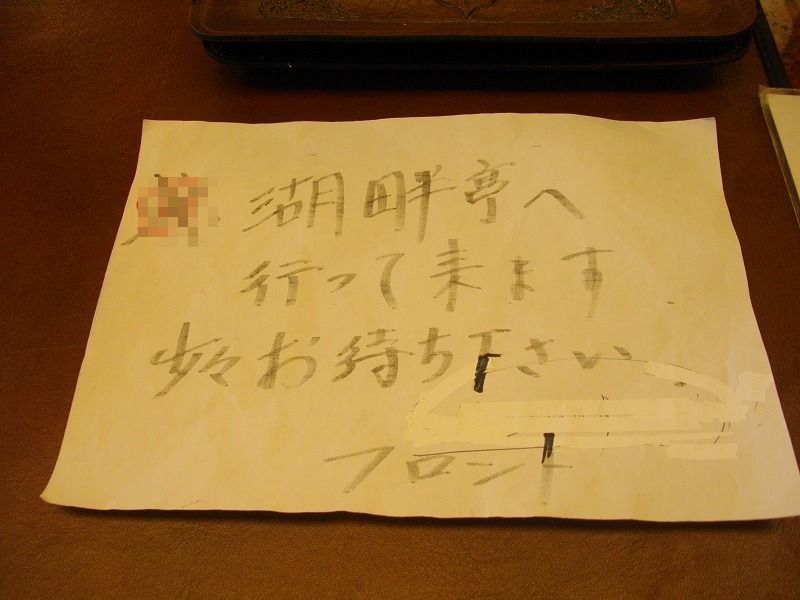 湖畔亭へ
行って来ます
少々お待ち下さい
フロント